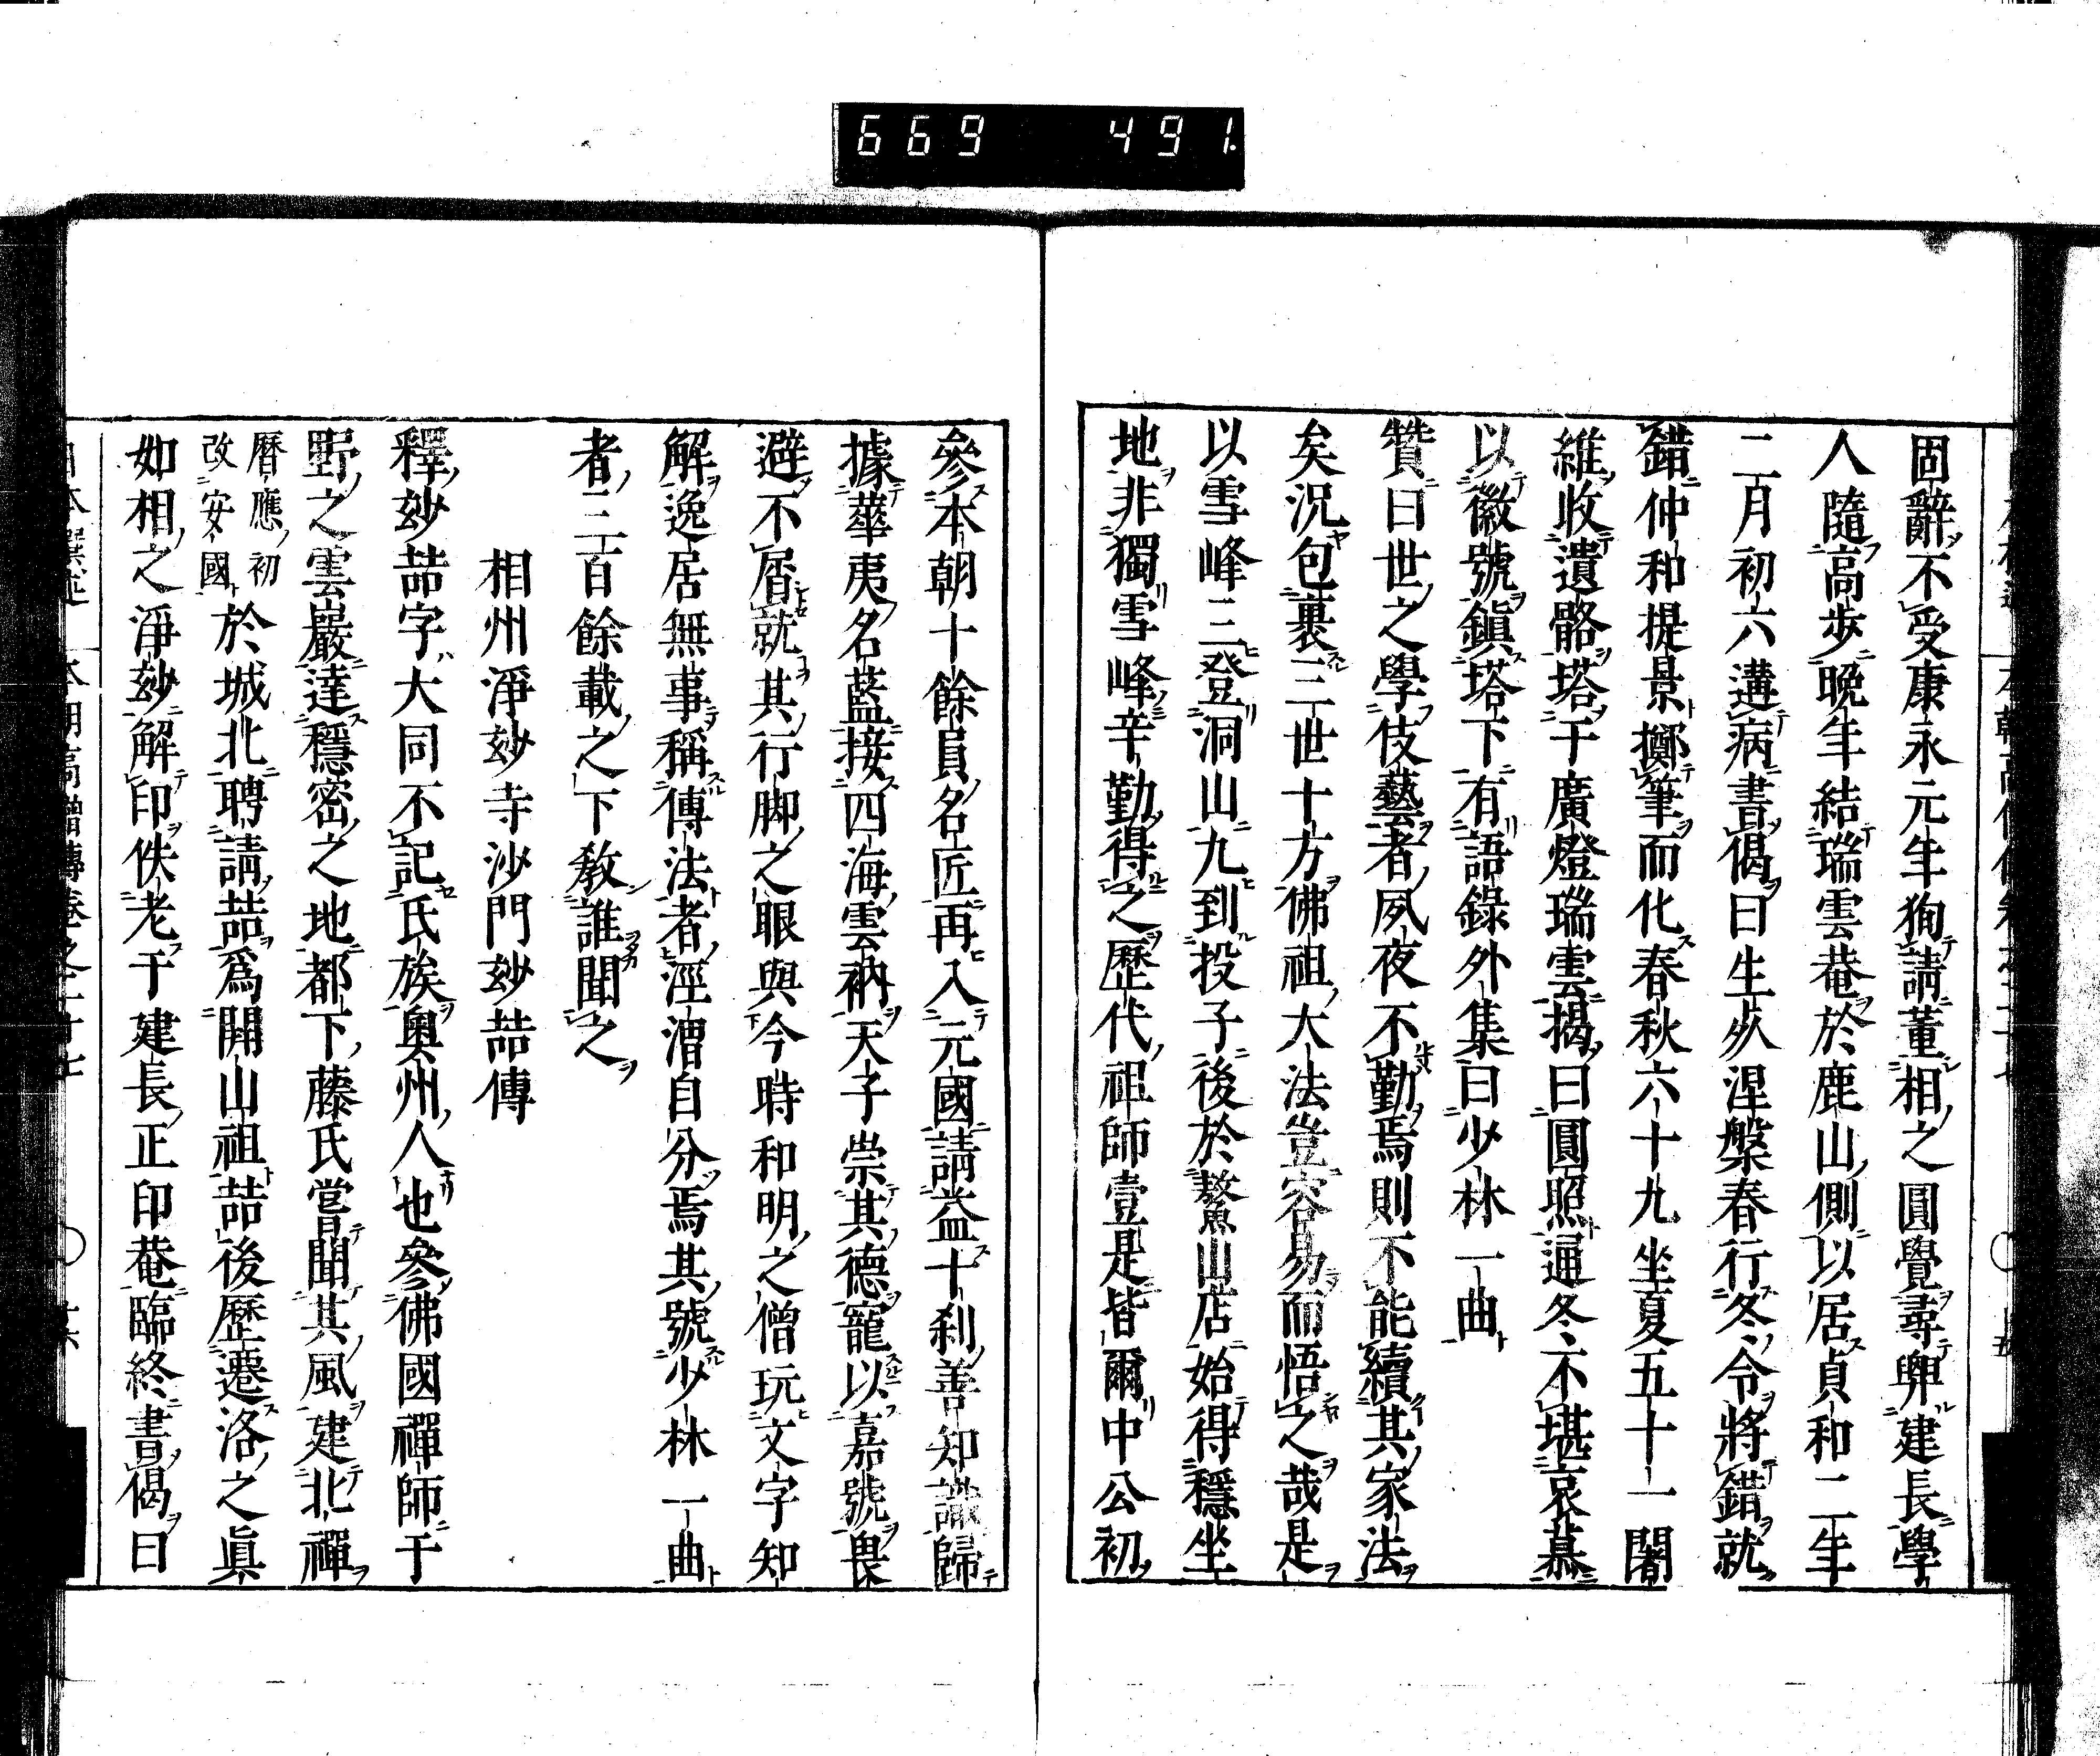 669 491.
固辭不受康永元年狥請董相之圓覺尋輿建長學
人隨高步晚年結瑞雲菴於鹿山側以居貞和二年
二月初六遘病書偈曰生死涅槃春行冬令將錯就
錯仲和提景擲筆而化春秋六十九坐夏五十一闍
維收遺骼塔于廣燈瑞雲揭曰圓照逼冬不堪哀慕
以徽號鎮塔下有語錄外集曰少林一曲
贊曰世之學伎藝者夙夜不勤焉則不能續其家法
矣況包裹三世十方佛祖大法豈容易而悟之哉是
以雪峰三登洞山九到投子後於鰲山店始得穩坐
地非獨雪峰辛勤得之歷代祖師壹是皆爾中公初
參本朝十餘員名匠再入元國請益十刹善知識歸
據華夷名藍接四海雲衲天子崇其德寵以嘉號畏
避不屑就其行脚之眼與今時和明之僧玩文字知
解逸居無事稱傳法者涇漕自分焉其號少林一曲
者三百餘載之下敎誰聞之
相州淨玅寺沙門玅喆傳
釋玅喆字大同不記氏族奧州人也參佛國禪師于
野之雲巖達穩密之地都下藤氏嘗聞其風建北禪
曆應初改安國於城北聘請喆爲開山祖喆後歷遷洛之眞
如相之淨玅解印佚老于建長正印菴臨終書偈曰
日本撰述 本朝高僧傳卷之二十七